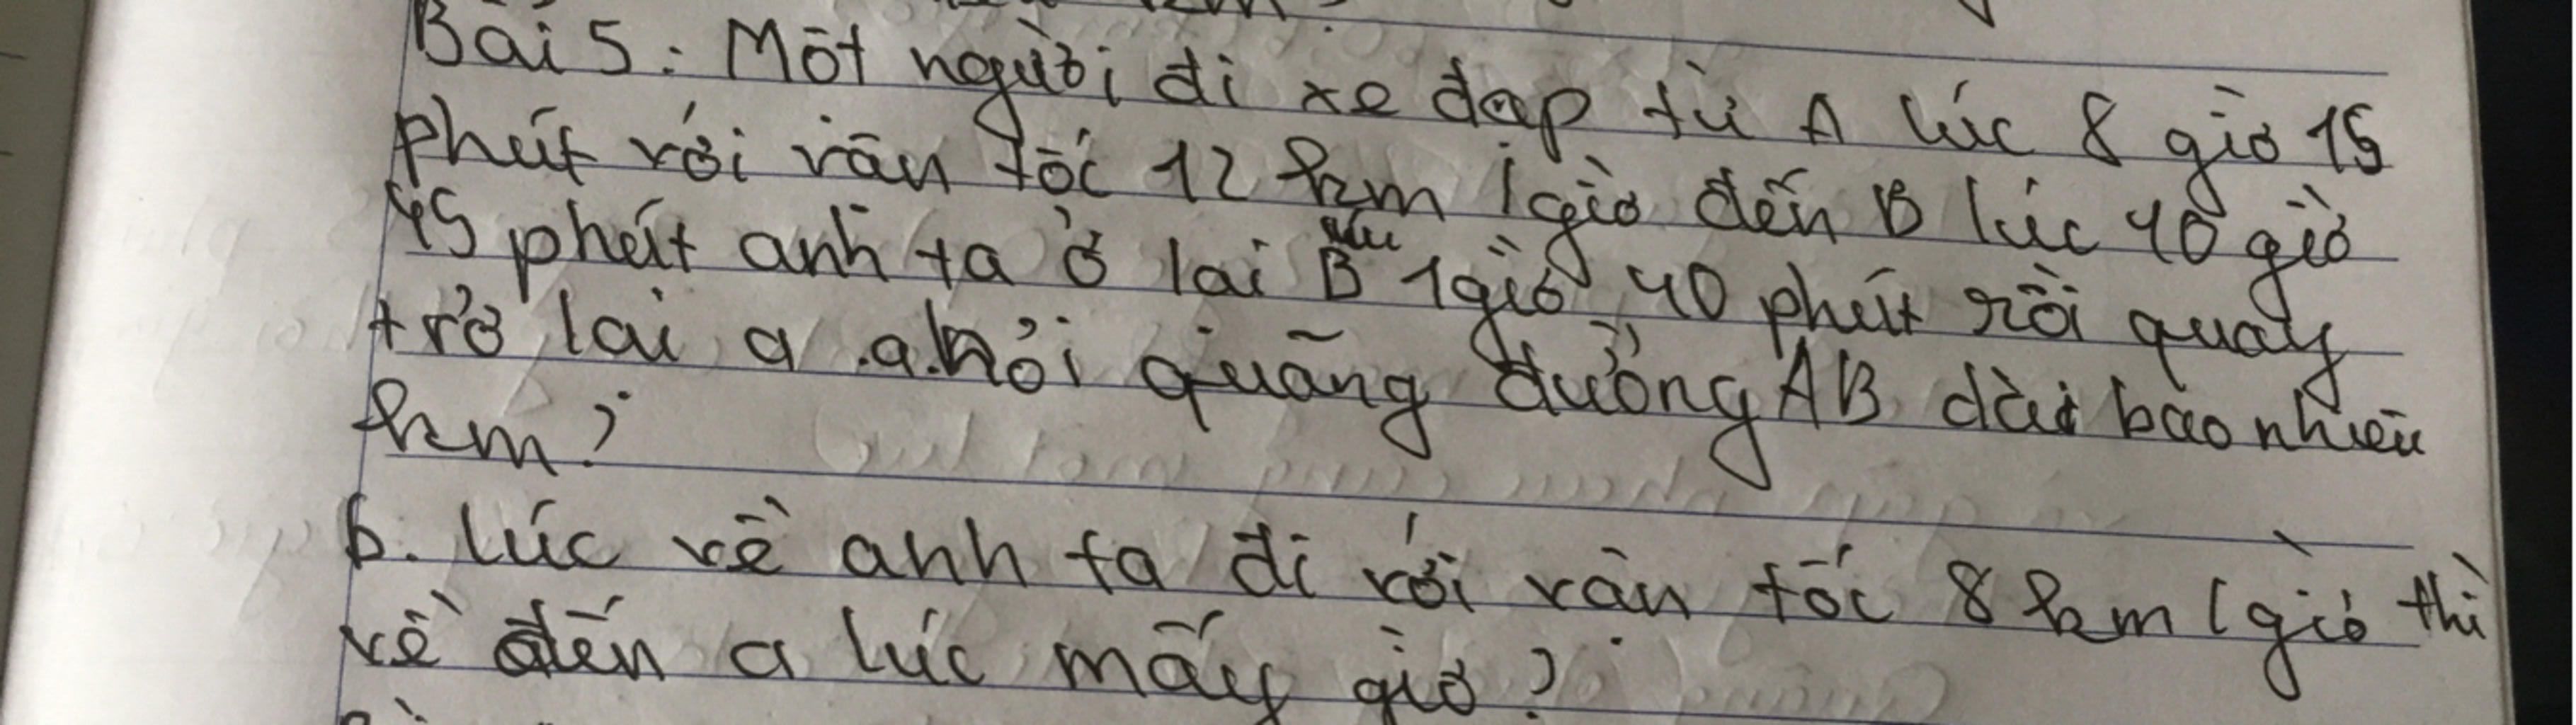 Bài 5: Một người đi xe đạp từ A lúc 8 giờ 15
phút với vận tốc 12 km / giờ đến B lúc 10 giờ
45 phút anh ta ở lại B 1 giờ 40 phút rồi quay
trở lại a .a.hỏi quãng đường AB dài bao nhiêu
km?
b. lúc về anh ta đi với vận tốc 8 km / giờ thì
về đến a lúc mấy giờ?